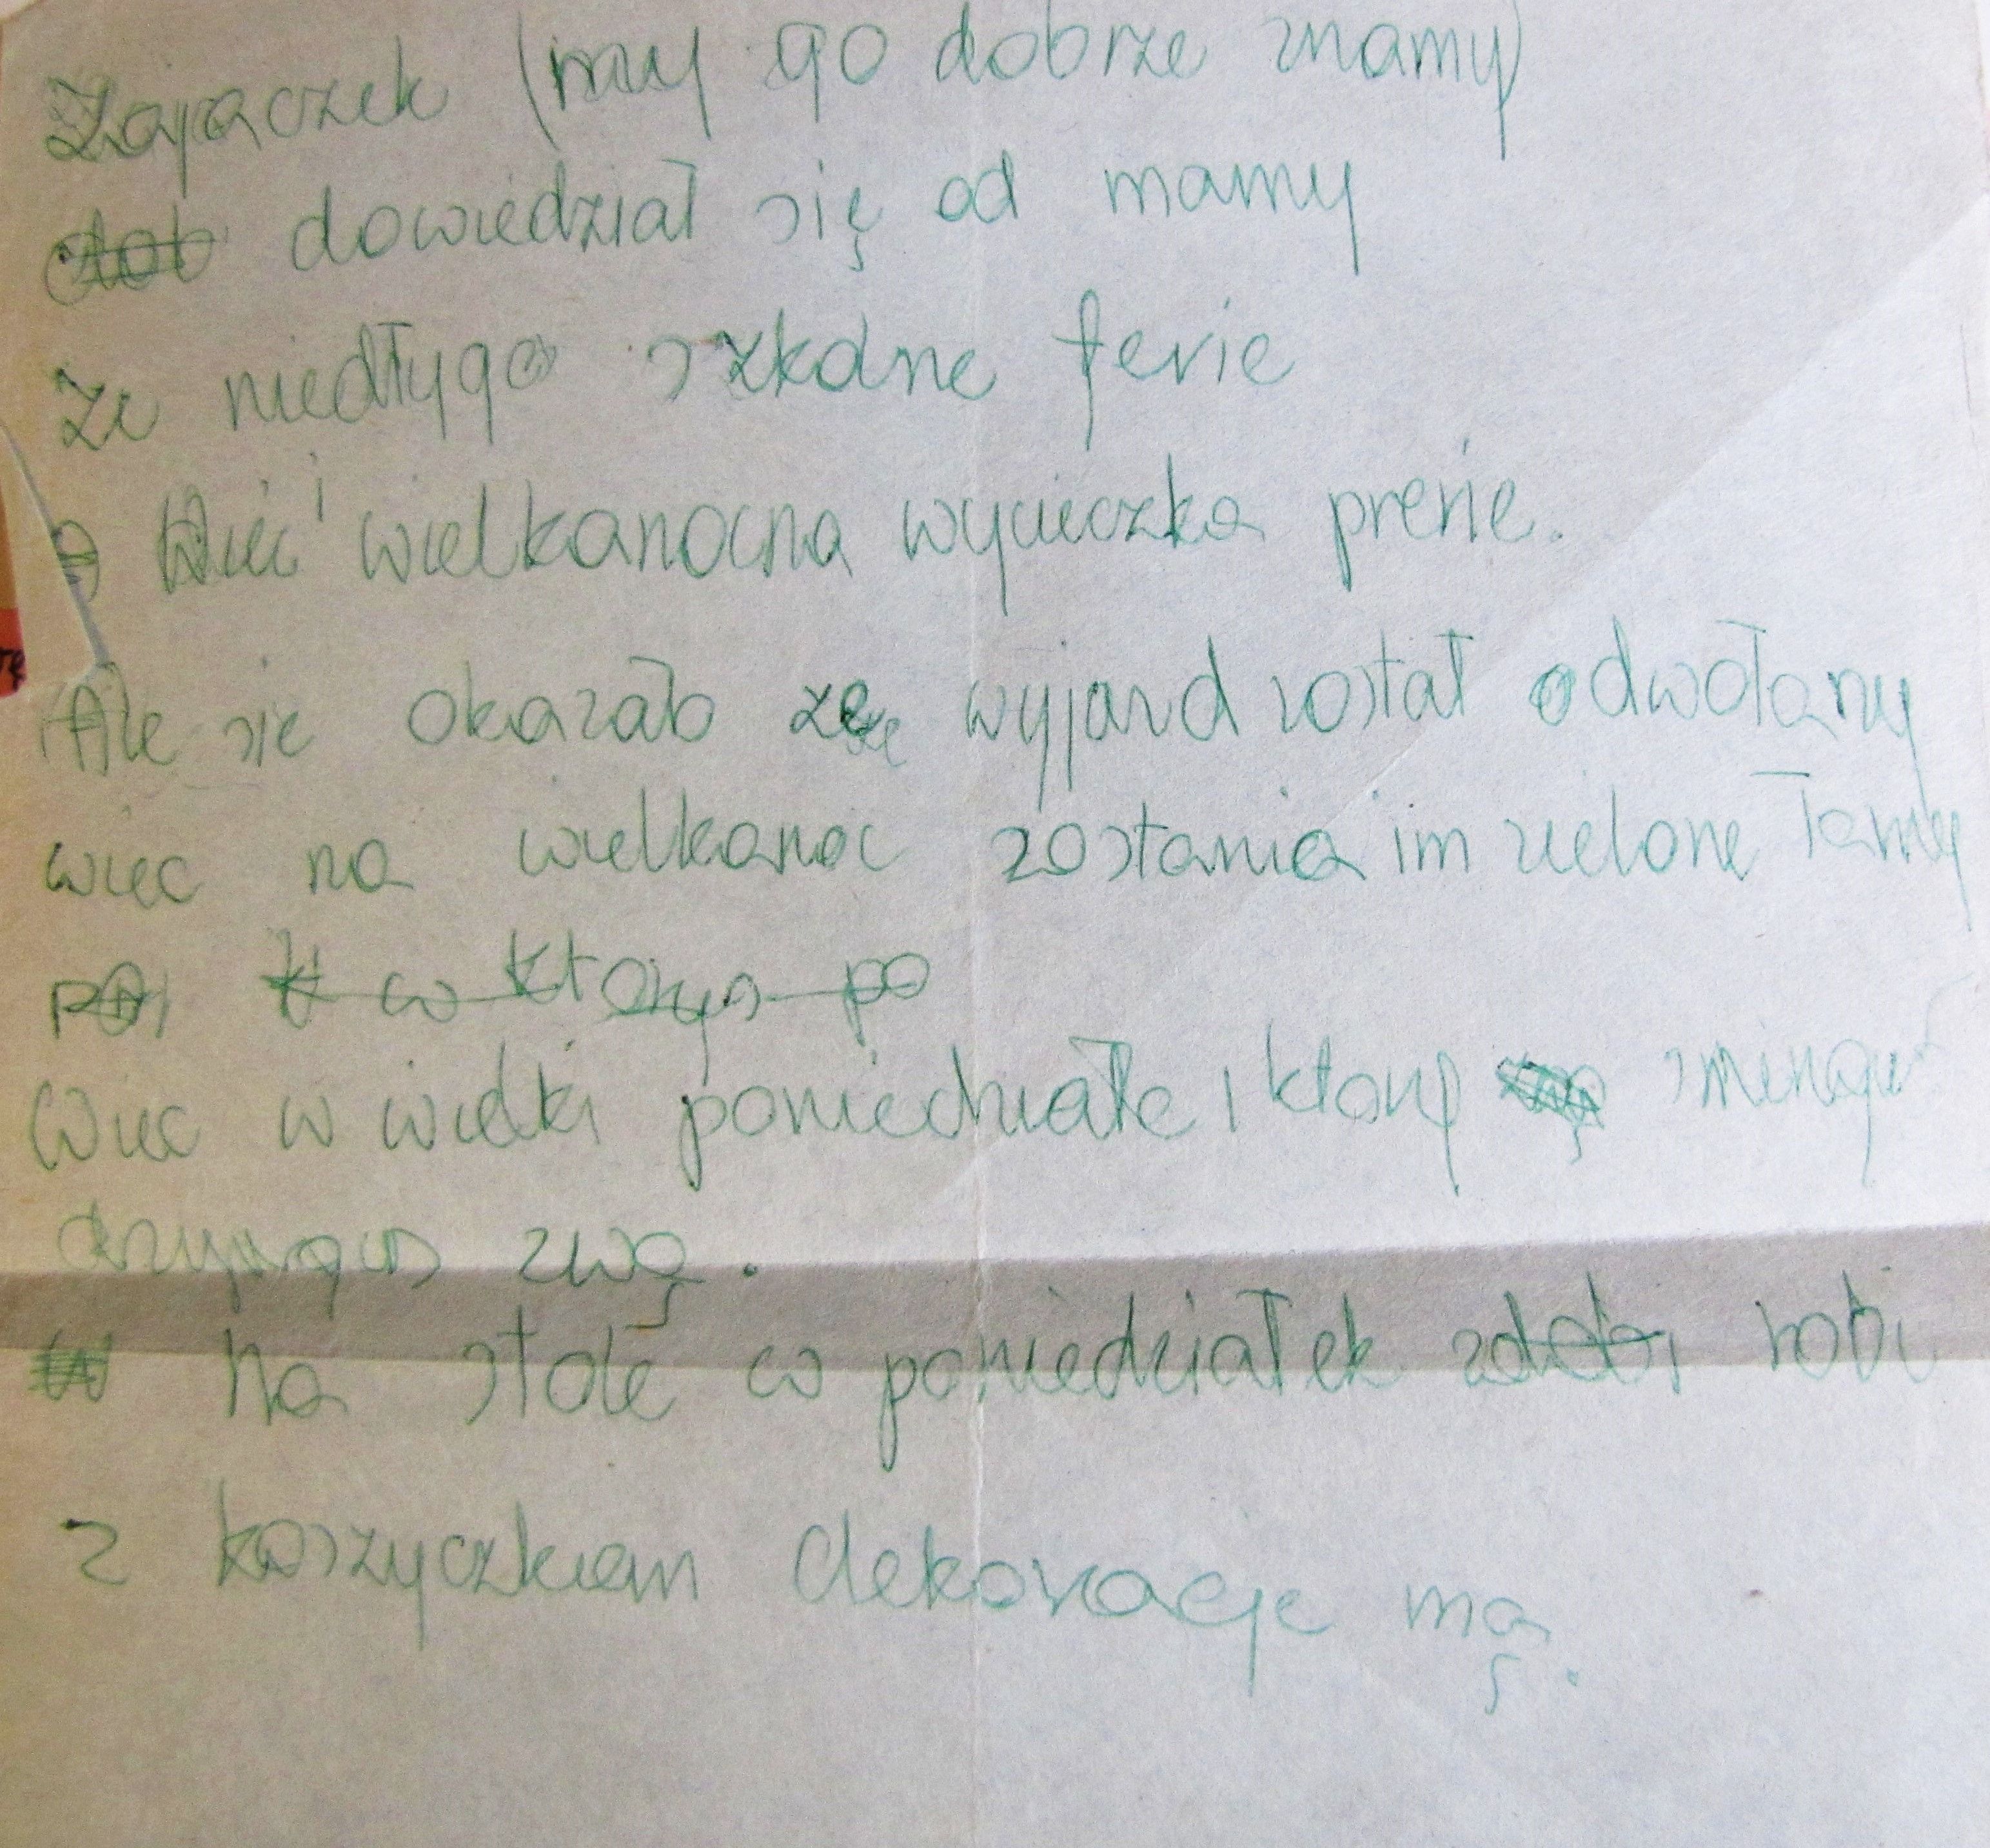 Zajączek (my go dobrze znamy)
dowiedział się od mamy
że niedłygo szkolne ferie
Więc i wielkanocna wycieczka prerie.
Ale sie okazało że wyjazd został odwołany
więc na wielkanoc zostania im zielone łamy
w któryś po
Wiec w wielki poniedziałe i ktory śmingus
dzyngus zwą.
Na stole w poniedziałek robi
z koszyczkiem dekoracje mą.